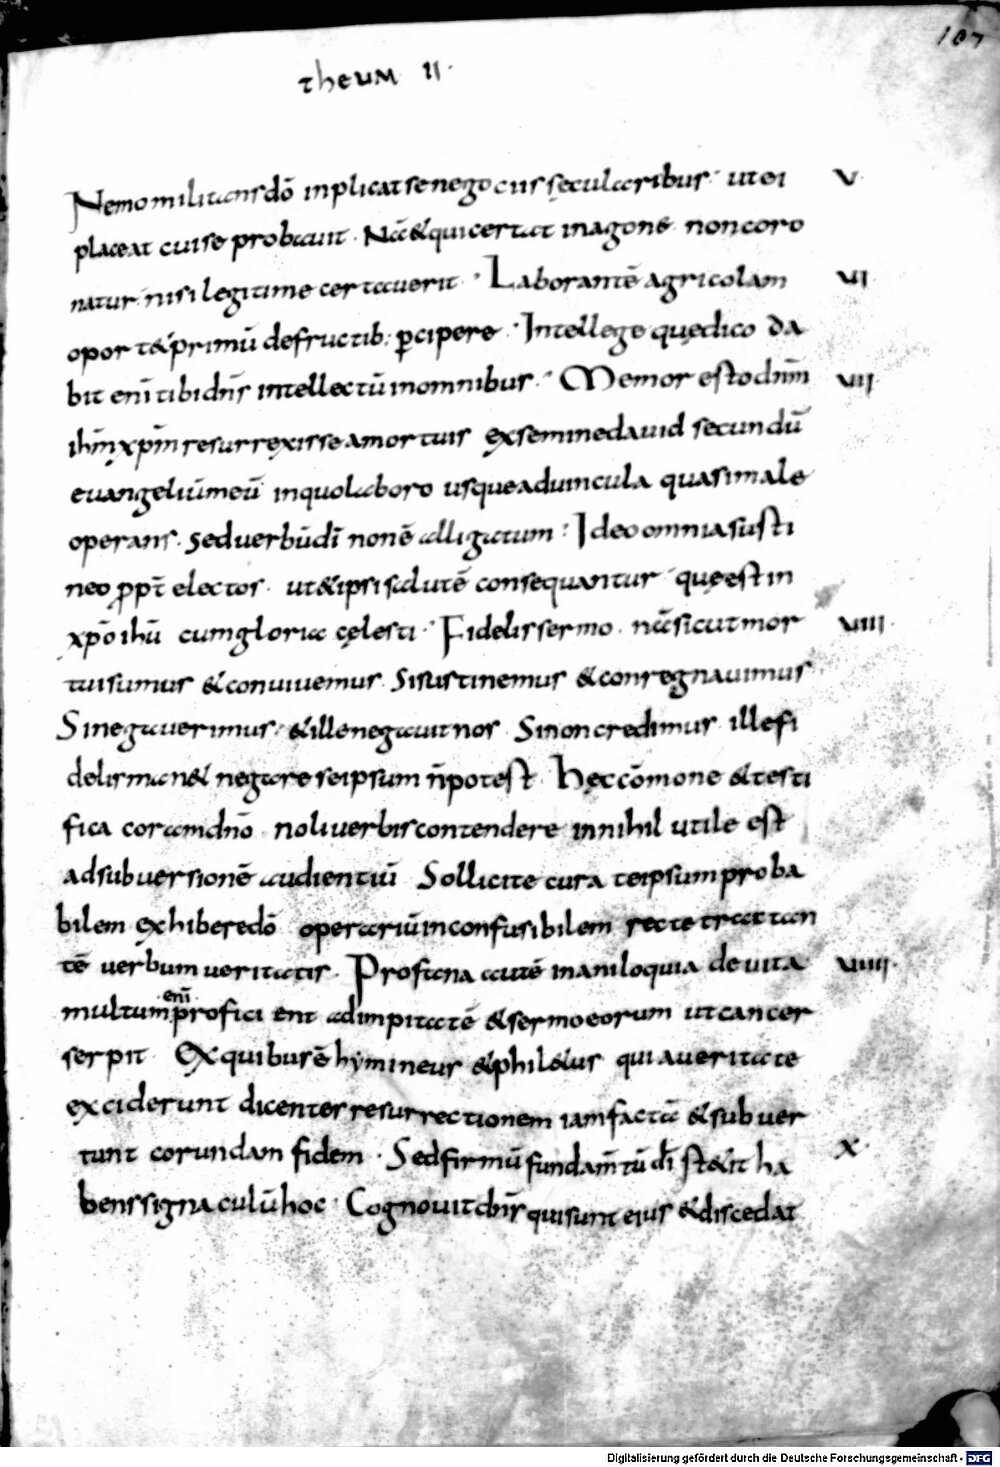 107
theum II.
Nemo militans dō inplicat se negociis sęcularibus · ut ei V
placeat cui se probauit · Nā & qui certat in agone non coro
natur nisi legitime certauerit · Laborantē agricolam VI
oport& primū de fructib; ꝑcipere · Intellege quę dico da
bit enī tibi dn̄s intellectū in omnibus · Memor esto dn̄m VII
ih̄m xp̄m resurrexisse a mortuis ex semine dauid secundū
euangeliū meū in quo laboro usque ad uincula quasi male
operans · sed uerbū dī non ē alligatum · Ideo omnia susti
neo ꝓpt̄ electos · ut & ipsi salutē consequantur quę est in
xp̄o ihū cum gloria cęlesti · Fidelis sermo · nā si cutmor VIII
tui sumus & conuiuemus · Si sustinemus & conregnauimus
Si negauerimus · & ille negauit nos Si non credimus ille fi
delis man& negare se ipsum n̄ potest · Hęc cōmone & testi
fica coram dn̄o noli uerbis contendere in nihil utile est
ad subuersionē audientiū Sollicite cura te ipsum proba
bilem exhibere dō operariū inconfusibilem recte tractan
tē uerbum ueritatis · Profana autē inaniloquia deuita VIIII
multum enī proficient ad impitatē & sermo eorum ut cancer
serpit Ex quibus ē hymineus & phil&us qui a ueritate
exciderunt dicentes resurrectionem iam factā & subuer
tunt corundam fidem · Sed firmū fundam̄tū dī st&it ha X
bens signaculū hoc · Cognouit dn̄s qui sunt eius & discedat
Digitalisierung gefördert durch die Deutsche Forschungsgemeinschaft - DFG